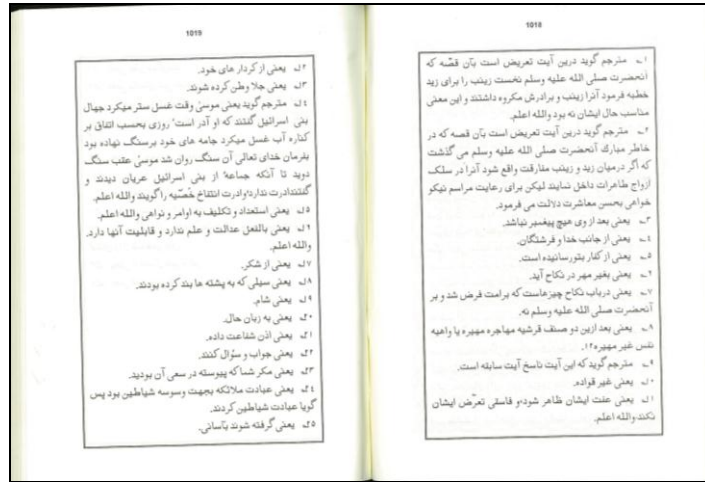 1018
۱ـ مترجم گوید درین آیت تعریض است بآن قصّه که
آنحضرت صلی الله علیه وسلم نخست زینب را برای زید
خطبه فرمود آنرا زینب و برادرش مکروه داشتند و این معنی
مناسب حال ایشان نه بود والله اعلم.
۲ـ مترجم گوید درین آیت تعریض است بآن قصه که در
خاطر مبارك آنحضرت صلی الله علیه وسلم می گذشت
که اگر درمیان زید و زینب مفارقت واقع شود آنرا در سلک
ازواج طاهرات داخل نمایند لیکن برای رعایت مراسم نیکو
خواهی بحسن معاشرت دلالت می فرمود.
۳ـ یعنی بعد از وی هیچ پیغمبر نباشد.
٤ـ یعنی از جانب خدا و فرشتگان.
۵ـ یعنی از کفار بتو رسانیده است.
۶ـ یعنی بغیر مهر در نکاح آید.
۷ـ یعنی درباب نکاح چیزهاست که برامت فرض شد و بر
آنحضرت صلی الله علیه وسلم نه.
۸ـ یعنی بعد ازین دو صنف قرشیه مهاجره مهیره یا واهبه
نفس غیر مهیره۱۲.
۹ـ مترجم گوید که این آیت ناسخ آیت سابقه است.
۱۰ـ یعنی غیر قواده.
۱۱ـ یعنی عفت ایشان ظاهر شود و فاسقی تعرّض ایشان
نکند والله اعلم.
1019
۱۲ـ یعنی از کردار های خود.
۱۳ـ یعنی جلا وطن کرده شوند.
۱٤ـ مترجم گوید یعنی موسیٰ وقت غسل ستر میکرد جهال
بنی اسرائیل گفتند که او آدر است روزی بحسب اتفاق بر
کناره آب غسل میکرد جامه های خود برسنگ نهاده بود
بفرمان خدای تعالی آن سنگ روان شد موسیٰ عقب سنگ
دوید تا آنکه جماعهٔ از بنی اسرائیل عریان دیدند و
گفتند ادرت ندارد و ادرت انتفاخ خُصّیه را گویند والله اعلم.
۱۵ـ یعنی استعداد و تکلیف به اوامر و نواهی والله اعلم.
۱۶ـ یعنی بالفعل عدالت و علم ندارد و قابلیت آنها دارد.
والله اعلم.
۱۷ـ یعنی از شکر.
۱۸ـ یعنی سیلی که به پشته ها بند کرده بودند.
۱۹ـ یعنی شام.
۲۰ـ یعنی به زبان حال.
۲۱ـ یعنی اذن شفاعت داده.
۲۲ـ یعنی جواب و سؤال کنند.
۲۳ـ یعنی مکر شما که پیوسته در سعی آن بودید.
۲٤ـ یعنی عبادت ملائکه بجهت وسوسه شیاطین بود پس
گویا عبادت شیاطین کردند.
۲۵ـ یعنی گرفته شوند بآسانی.